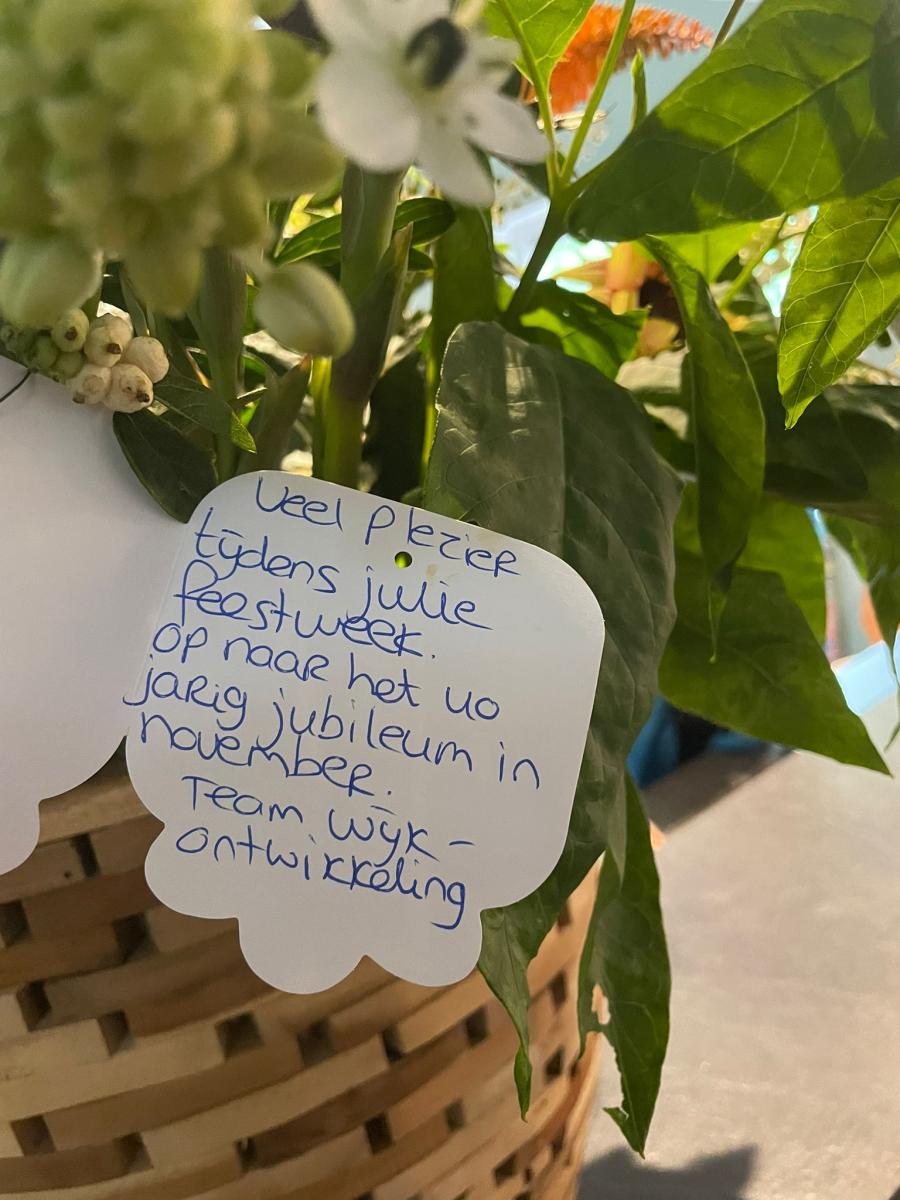 Veel plezier
tijdens jullie
feestweek.
op naar het 40
jarig jubileum in
november.
Team wijk-
ontwikkeling